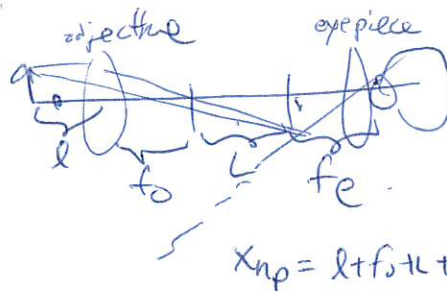 adjective
eyepiece
l
f₀
L
fe
Xnp = l+f₀+L+